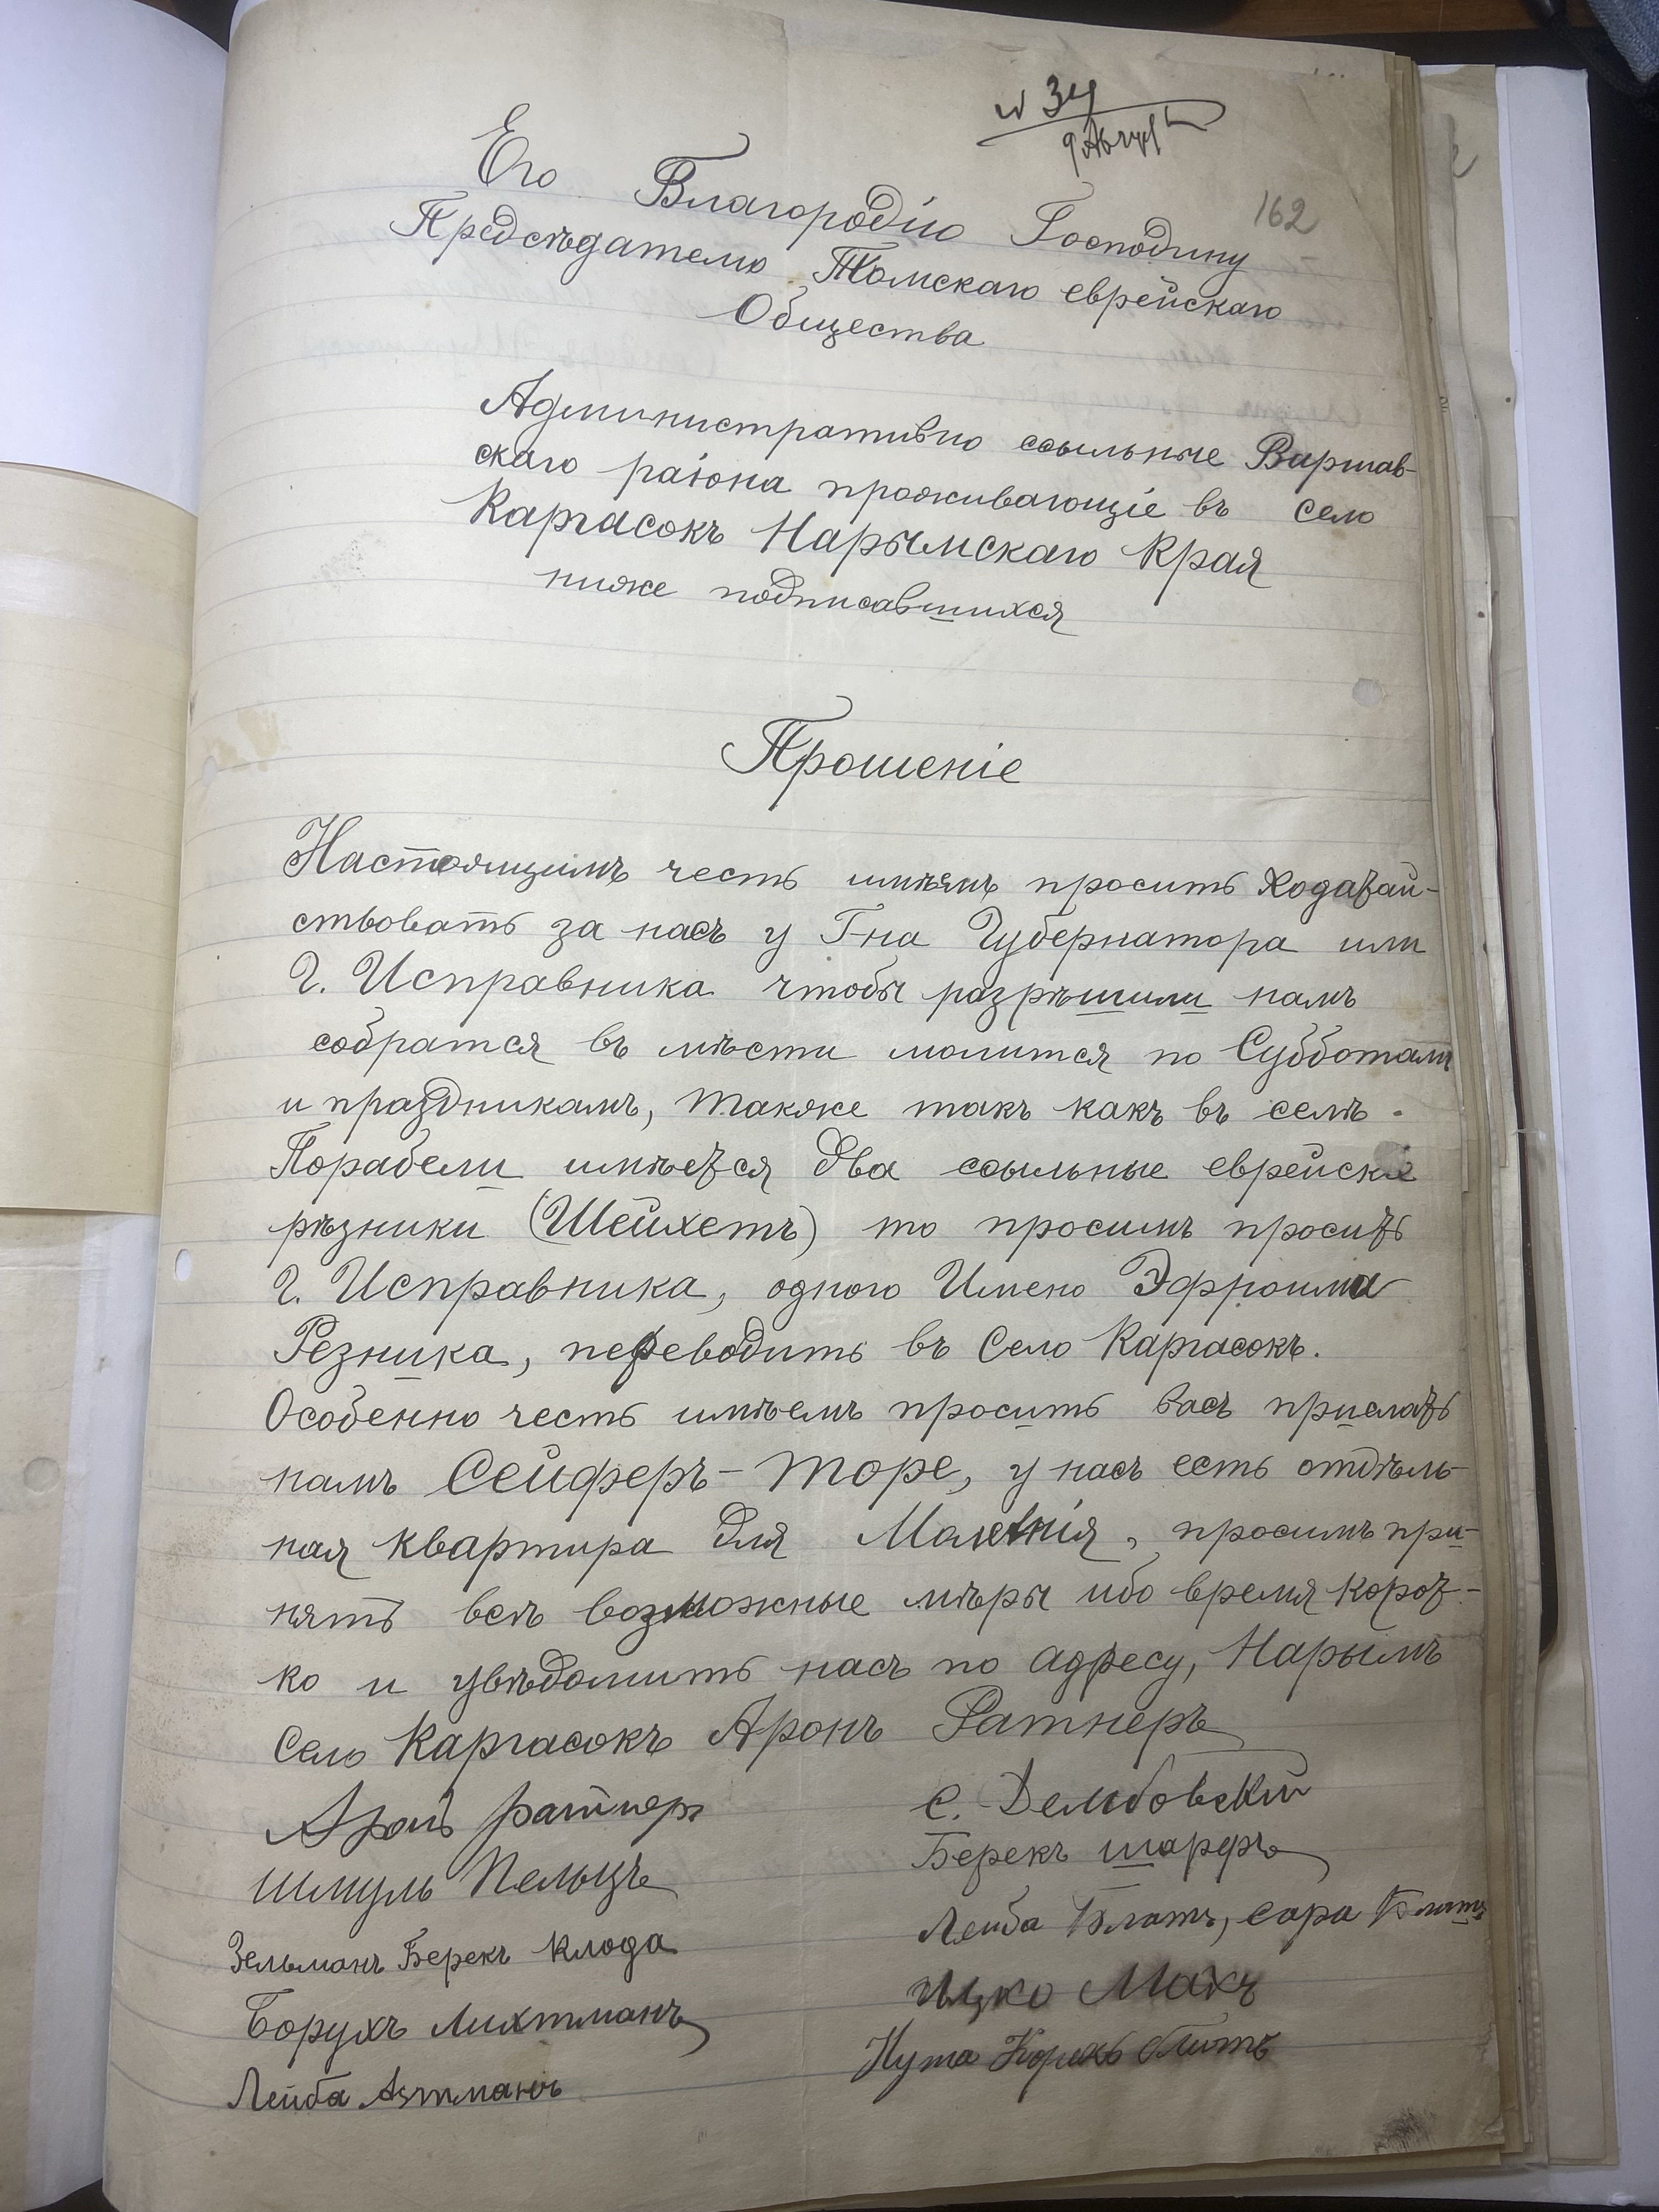 № 34
9 Август
162
Его Благородію Господину
Предсѣдателю Томскаго еврейскаго
Общества
Административно ссыльные Варшав-
скаго раіона проживающіе въ село
Каргасокъ Нарымскаго Края
ниже подписавшихся
Прошеніе
Настоящимъ честь имѣемъ просить Ходатай-
ствовать за насъ у Г-на Губернатора или
Г. Исправника чтобы разрѣшили намъ
собратся въ мѣсти молится по Субботамъ
и праздникамъ, также такъ какъ въ селѣ
Парабели имѣется два ссыльные еврейскіе
рѣзники (Шейхетъ) то просимъ просить
Г. Исправника, одного Имено Эфроима
Резника, переводить въ Село Каргасокъ.
Особенно честь имѣемъ просить васъ прислать
намъ Сейферъ-Торе, у насъ есть отдѣль-
ная квартира для Молетнія, просимъ при-
нять всѣ возможные мѣры ибо время корот-
ко и увѣдомить насъ по адресу, Нарымъ
Село Каргасокъ Аронъ Ратнеръ
Аронъ Ратнеръ
С. Дембовскій
Шмуль Пельцъ
Берекъ шарфъ
Зельманъ Берекъ Клода
Лейба Блатъ, сара Блатъ
Борухъ Лихтманъ
Ицко Махъ
Лейба Азтманъ
Нута